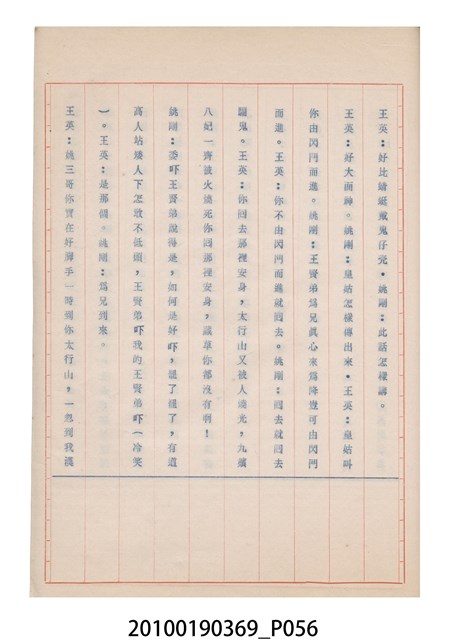 王英：好比蜻蜓戴鬼仔壳・姚剛：此話怎樣講。
王英：好大面神。姚剛：皇姑怎樣傳出來・王英：皇姑叫
你由閃門而進。姚剛：王賢弟爲兄眞心來爲降豈可由閃門
而進。王英：你不由閃門而進就囘去。姚剛：囘去就囘去
囉鬼。王英：你囘去那裡安身，太行山又被人燒光，九嬪
八妃一齊被火燒死你囘那裡安身，講單你都沒有啊！
姚剛：委吓王賢弟說得是，如何是好吓，罷了罷了，有道
高人站矮人下怎敢不低頭，王賢弟吓我的王賢弟吓（冷笑
）。王英：是那個。姚剛：爲兄到來。
王英：姚三哥你實在好脚手一時間你太行山，一想到我漢
20100190369_P056